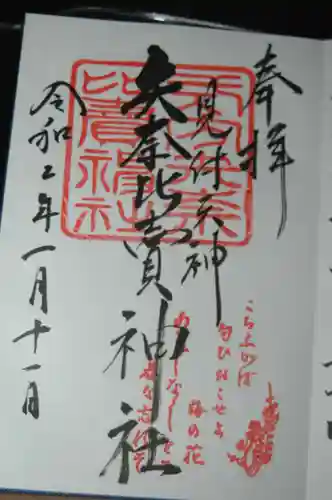 奉拝
見付天神
矢奈比賣神社
令和二年一月十一日
こちふかば
匂ひおこせよ
梅の花
あるじなしとて
春な忘れそ
矢奈
比賣
神社